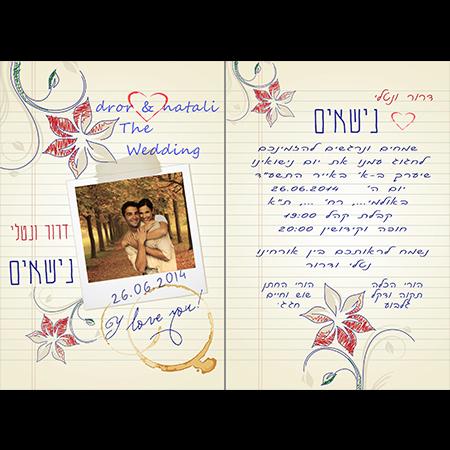 dror & natali
The
Wedding
דרור ונטלי
נישאים
26.06.2014
I love you!
דרור ונטלי
נישאים
שמחים ונרגשים להזמינכם
לחגוג עמנו את יום נישואינו
שיערך ב-א' באייר התשע"ד
יום ה' 26.06.2014
באולמי...., רח' ...., ת"א
קבלת קהל 19:00
חופה וקידושין 20:00
נשמח לראותכם בין אורחינו
נטלי ודרור
הורי הכלה
תקוה ודקל
גלבוע
הורי החתן
שוש וחיים
חגג'